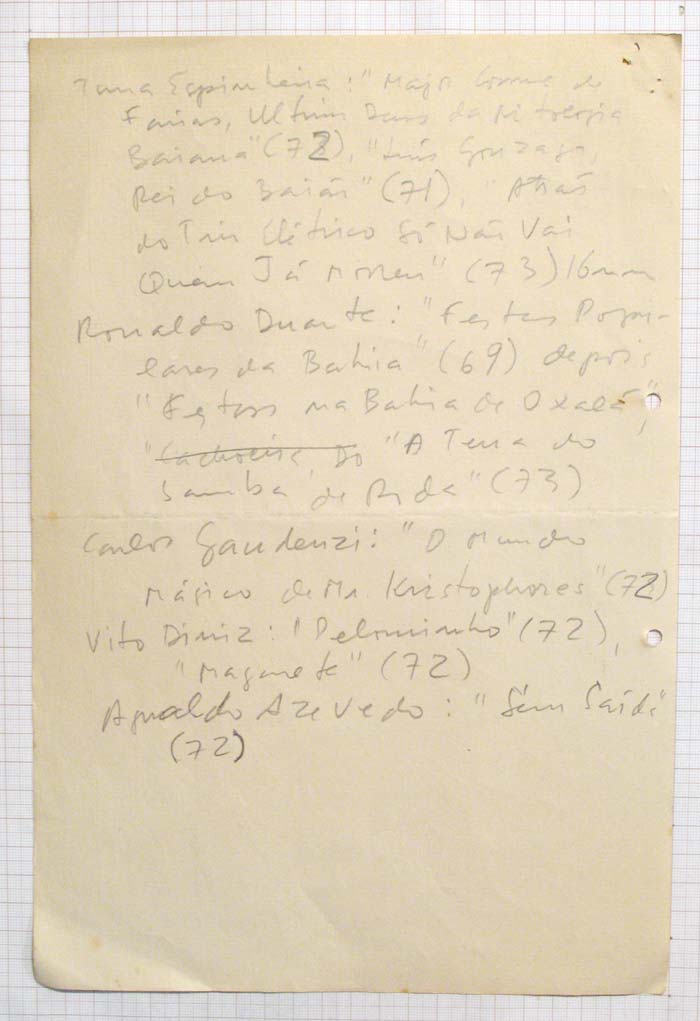 Tuna Espinheira: "Major Cosme de
Farias, Ultimo Deus da Mitologia
Baiana" (72), "Luís Gonzaga,
Rei do Baião" (71), "Atrás
do Trio Elétrico Só Não Vai
Quem Já Morreu" (73) 16mm
Ronaldo Duarte: "Festas Popu-
lares da Bahia" (69) depois
"Festas na Bahia de Oxalá",
"Cachoeira, Do "A Terra do
Samba de Roda" (73)
Carlos Gaudenzi: "O Mundo
Mágico de Mr Kristophores" (72)
Vito Diniz: "Pelourinho" (72),
"Magarete" (72)
Agnaldo Azevedo: "Sem Saída"
(72)